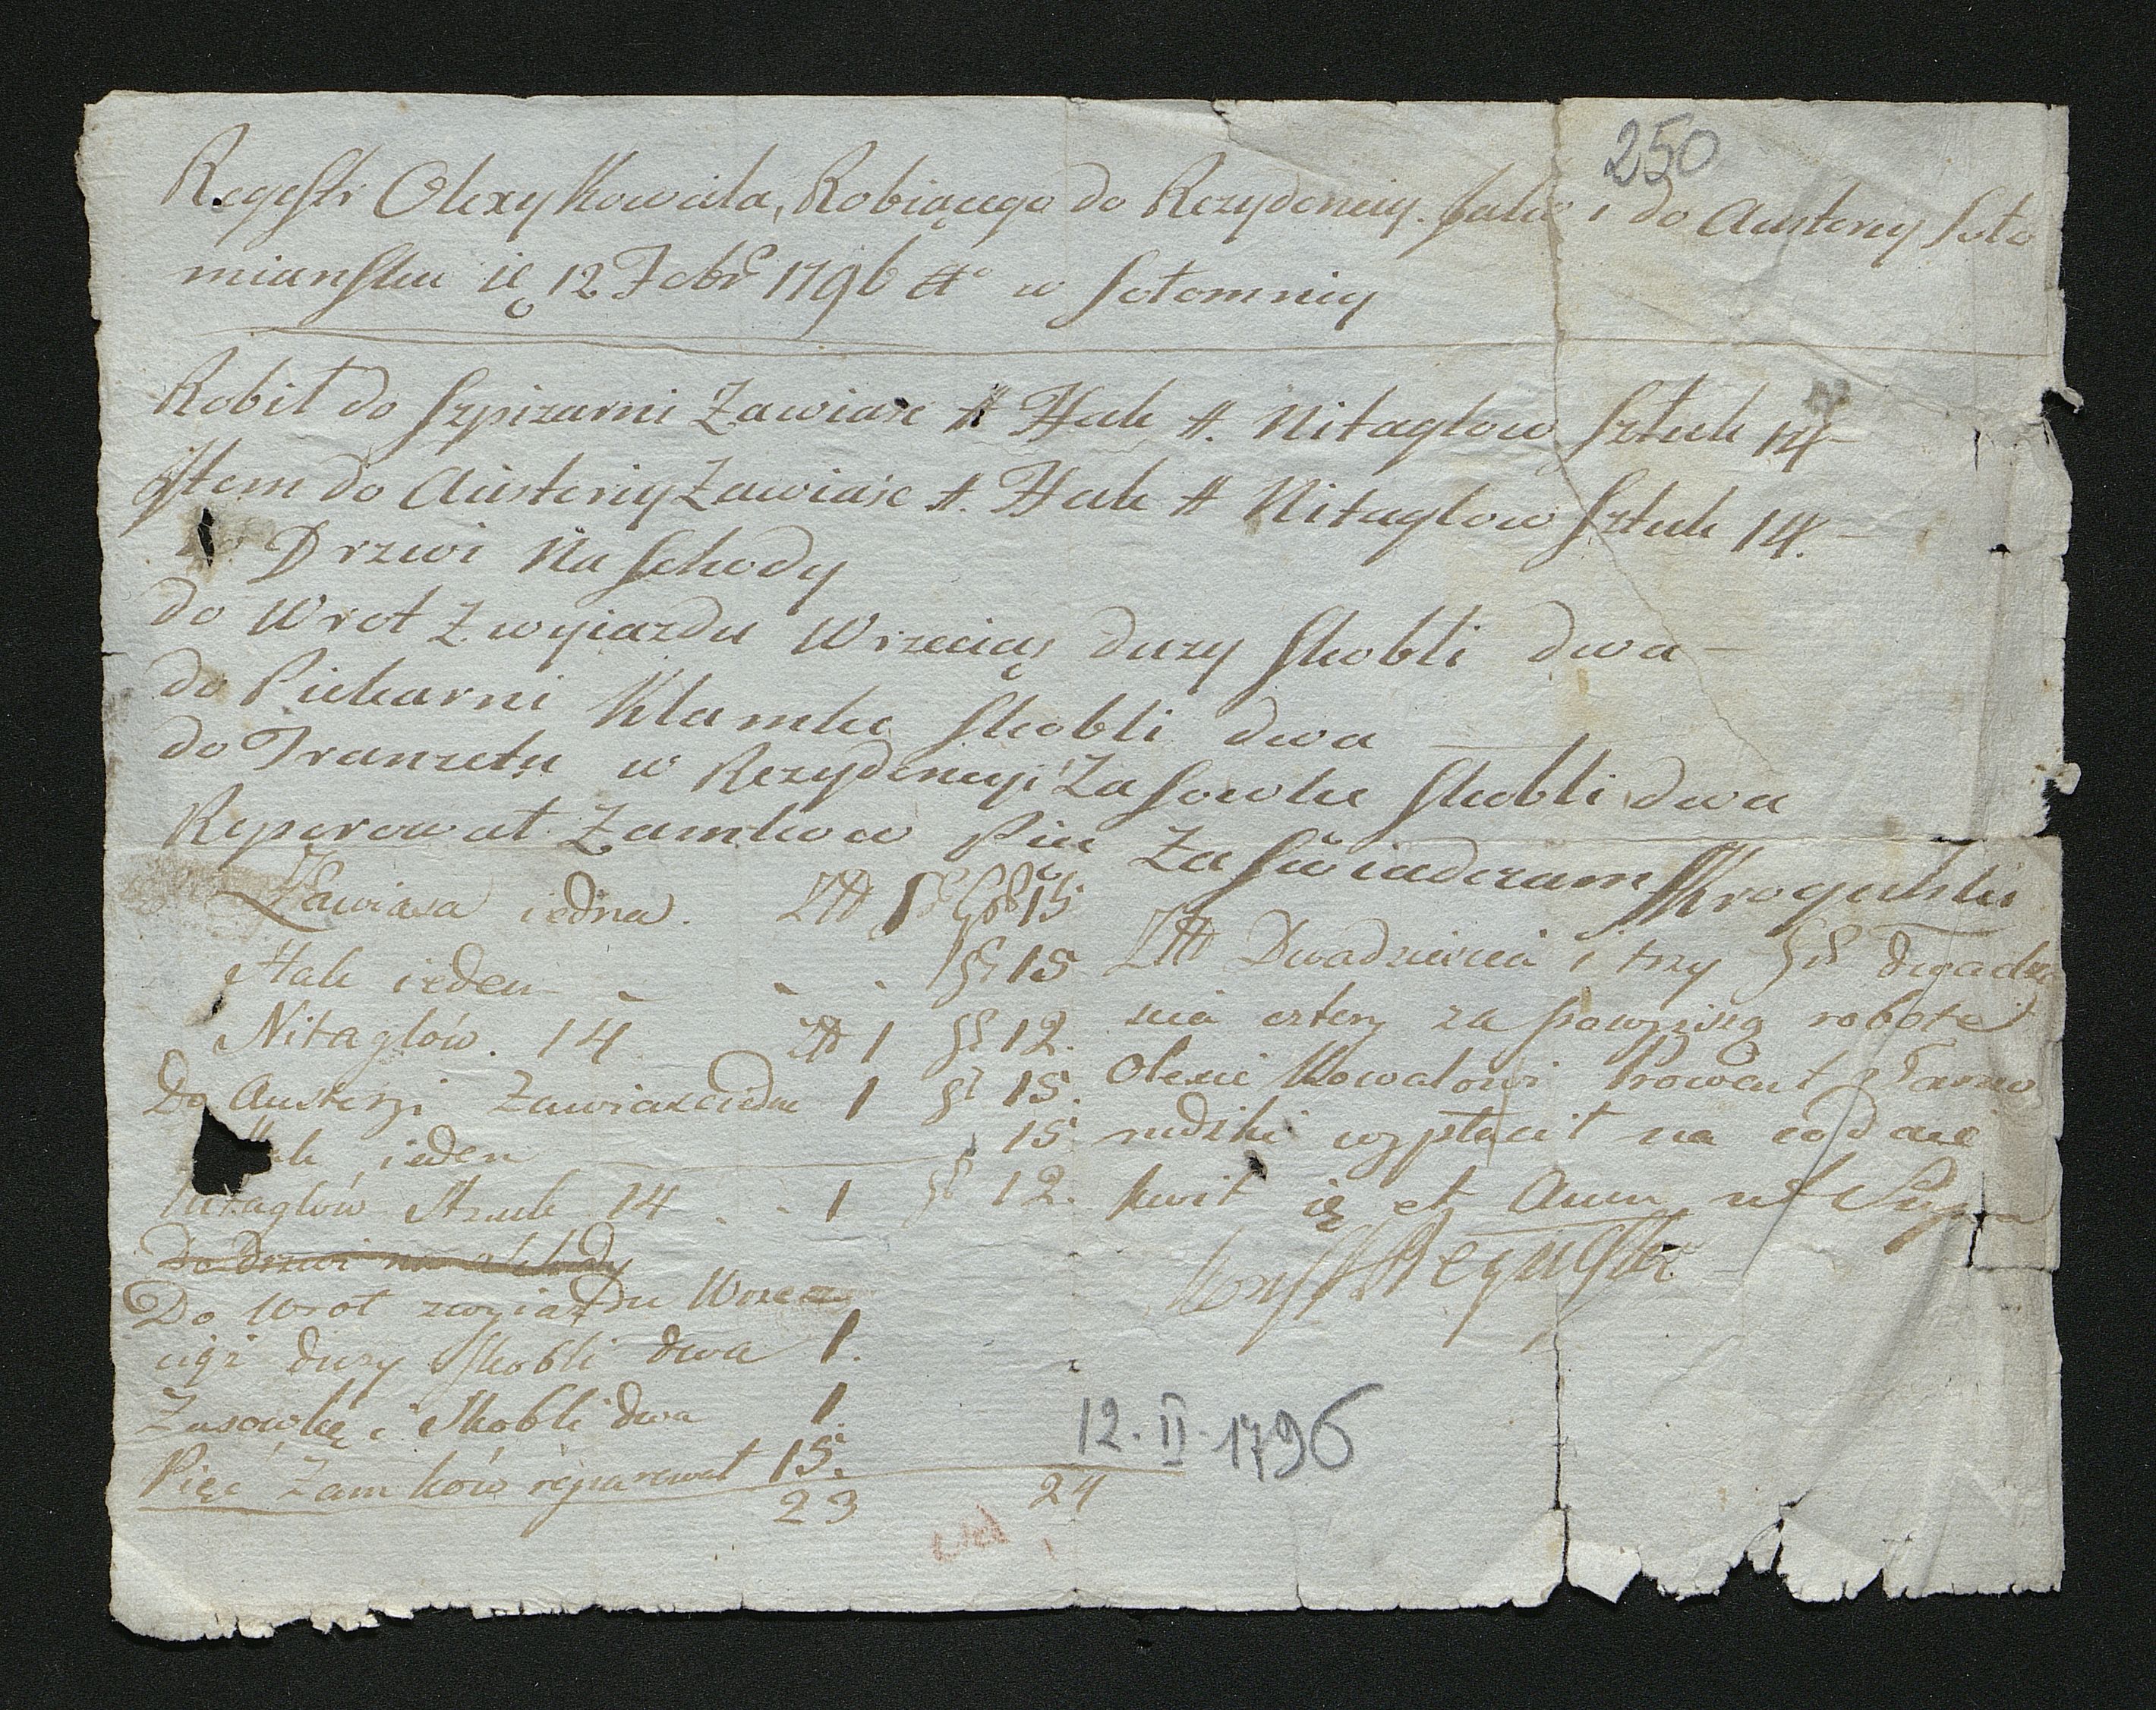 250
Regestr Olexy Kowala, Robiącego do Rezydencyi i do Austeryi Soło
mianska ię 12 Febr 1796 Ao w Sołomniy
Robił do Szpizarni Zawiase # Hak #. Nitaglow Sztuk 14 -
Item do Austeryi Zawiase #. Hak # Nitaglow Sztuk 14. -
Drzwi Na Schody
do Wrot Zwyiazdu Wrzeciąz duzy Skobli dwa -
do Piekarni Klamke Skobli dwa
do Tranzetu w Rezydencyi Zasowke Skobli dwa
Reperowal Zamkow Piec Zaswiadczam Krogulski
Zawiasa iedna. Złł 1 gr 15
Hak ieden - - . gr 15
Nitaglów. 14 Złł 1 gr 12.
Do Austeryi Zawiase iedne 1 gr 15.
ak ieden 15.
Nitaglów Sztuk 14 - - 1 gr 12.
Do Drzwi na schody
Do Wrot zwyiazdu Wrze
ciąz duzy Skobli dwa 1.
Zasowkę i Skobli dwa 1.
Pięć Zamków reparował 15.
23 24
Złł Dwadziescia i trzy gr dwadzie
scia cztery za powyzszą robotę
Olexie Kowalowi Prowent
rudzki wypłacił na co daie
kwit ię et Anno ut Supra
12. II. 1796